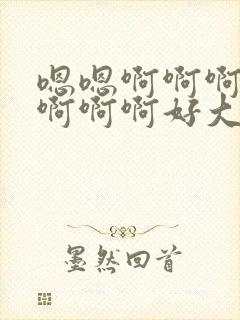 嗯嗯啊啊啊
啊啊啊好大
墨然回首